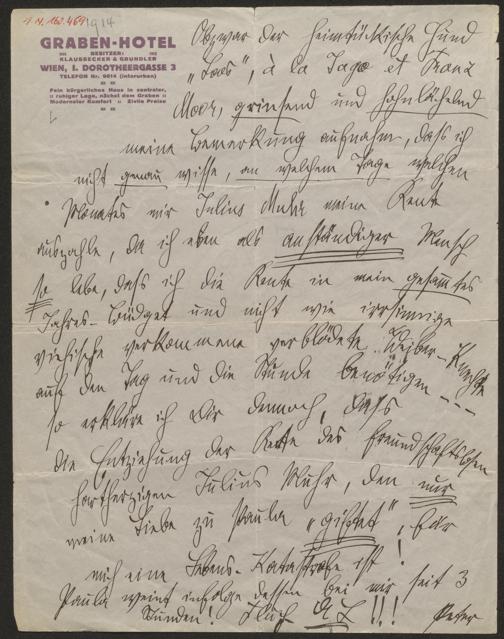 J. N. 163.469
1914
GRABEN-HOTEL
BESITZER:
KLAUSSECKER & GRUNDLER
WIEN, I. DOROTHEERGASSE 3
TELEFON Nr. 9616 (interurban)
Fein bürgerliches Haus in zentraler,
ruhiger Lage, nächst dem Graben
Moderner Komfort Zivile Preise
Obzwar der heimtückische Hund
„Loos", à la Jago et Franz
Moor, grinsend und hohnlächelnd
meine Bemerkung aufnahm, dass ich
nicht genau wisse, an welchem Tage welchen
Monates mir Julius Muhr meine Rente
auszahle, da ich eben als anständiger Mensch
so lebe, dass ich die Rente in mein gesamtes
Jahres-Büdget und nicht wie irrsinnige
viehische verkommene verblödete Weiber-Knechte
auf den Tag und die Stunde benötigen ---
so erkläre ich Dir dennoch, dass
die Entziehung der Rente des freundschaftslosen
hartherzigen Julius Muhr, den nur
meine Liebe zu Paula „giftet", für
mich eine Lebens-Katastrophe ist!
Paula weint infolge dessen bei mir seit 3
Stunden! Fluch A. L.!!!
Peter